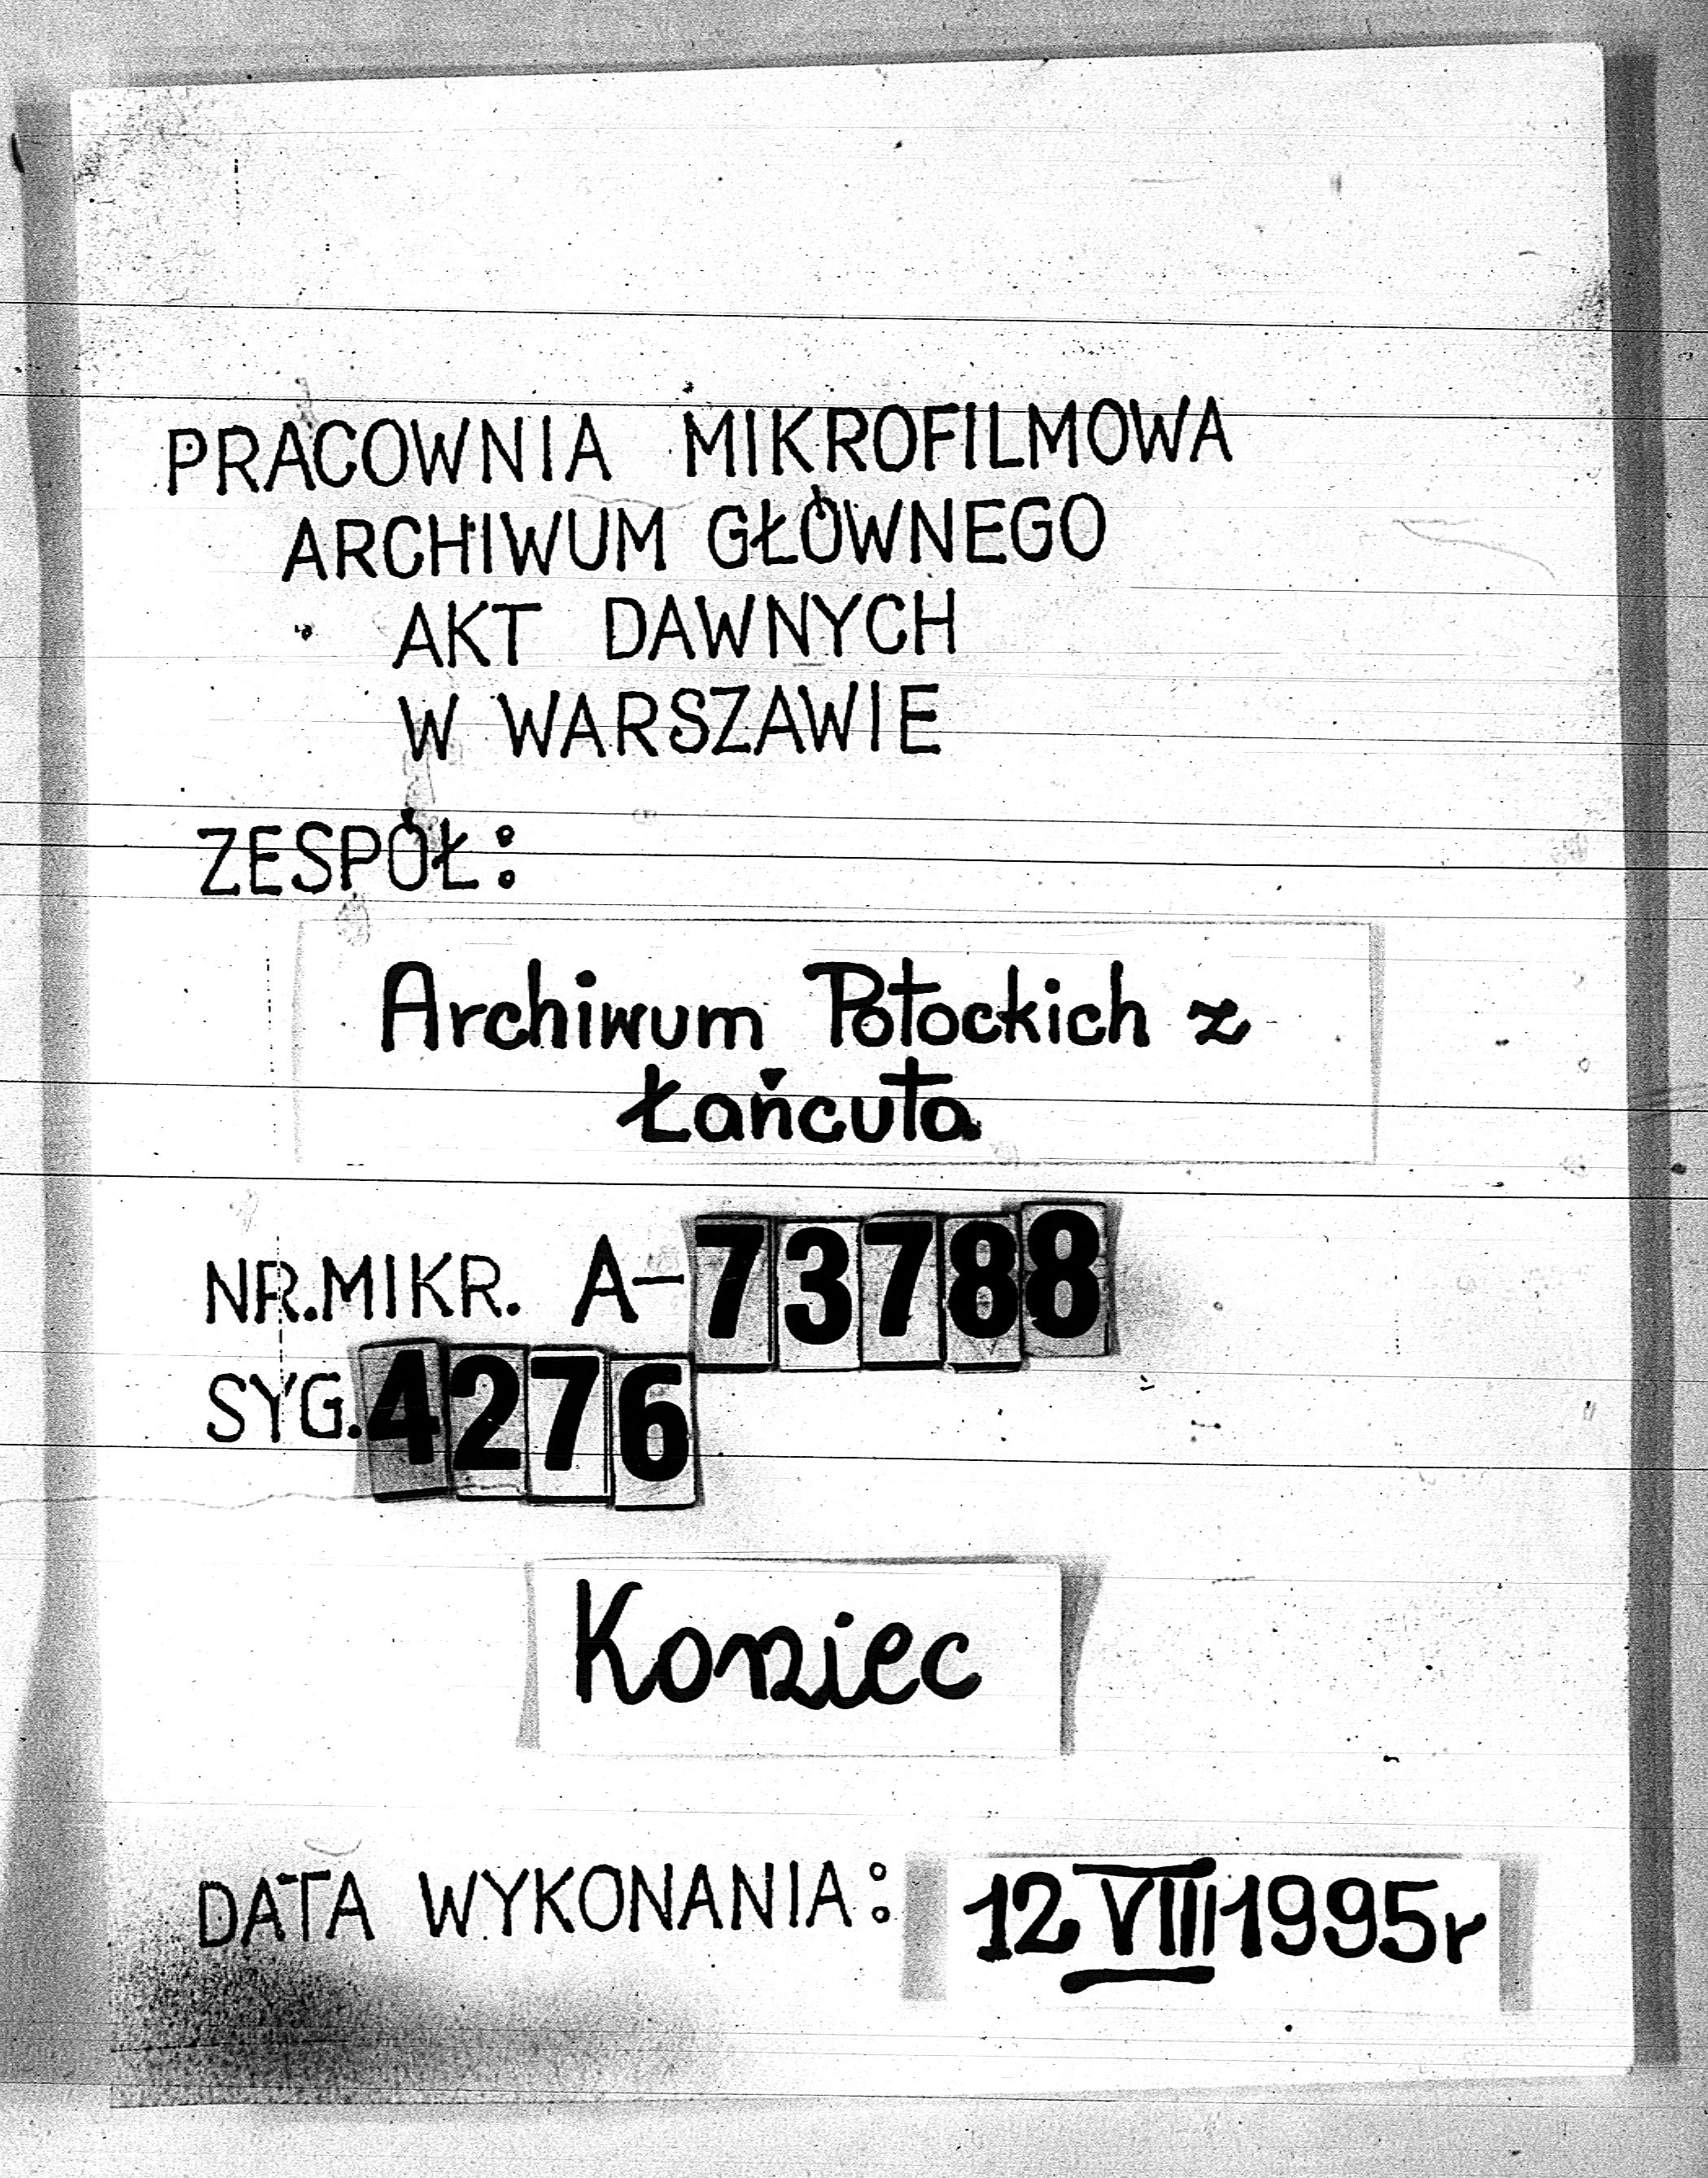 PRACOWNIA MIKROFILMOWA
ARCHIWUM GŁÓWNEGO
AKT DAWNYCH
W WARSZAWIE
ZESPÓŁ:
Archiwum Potockich z
Łańcuta
NR. MIKR. A-73788
SYG. 4276
Koniec
DATA WYKONANIA: 12 VIII 1995r